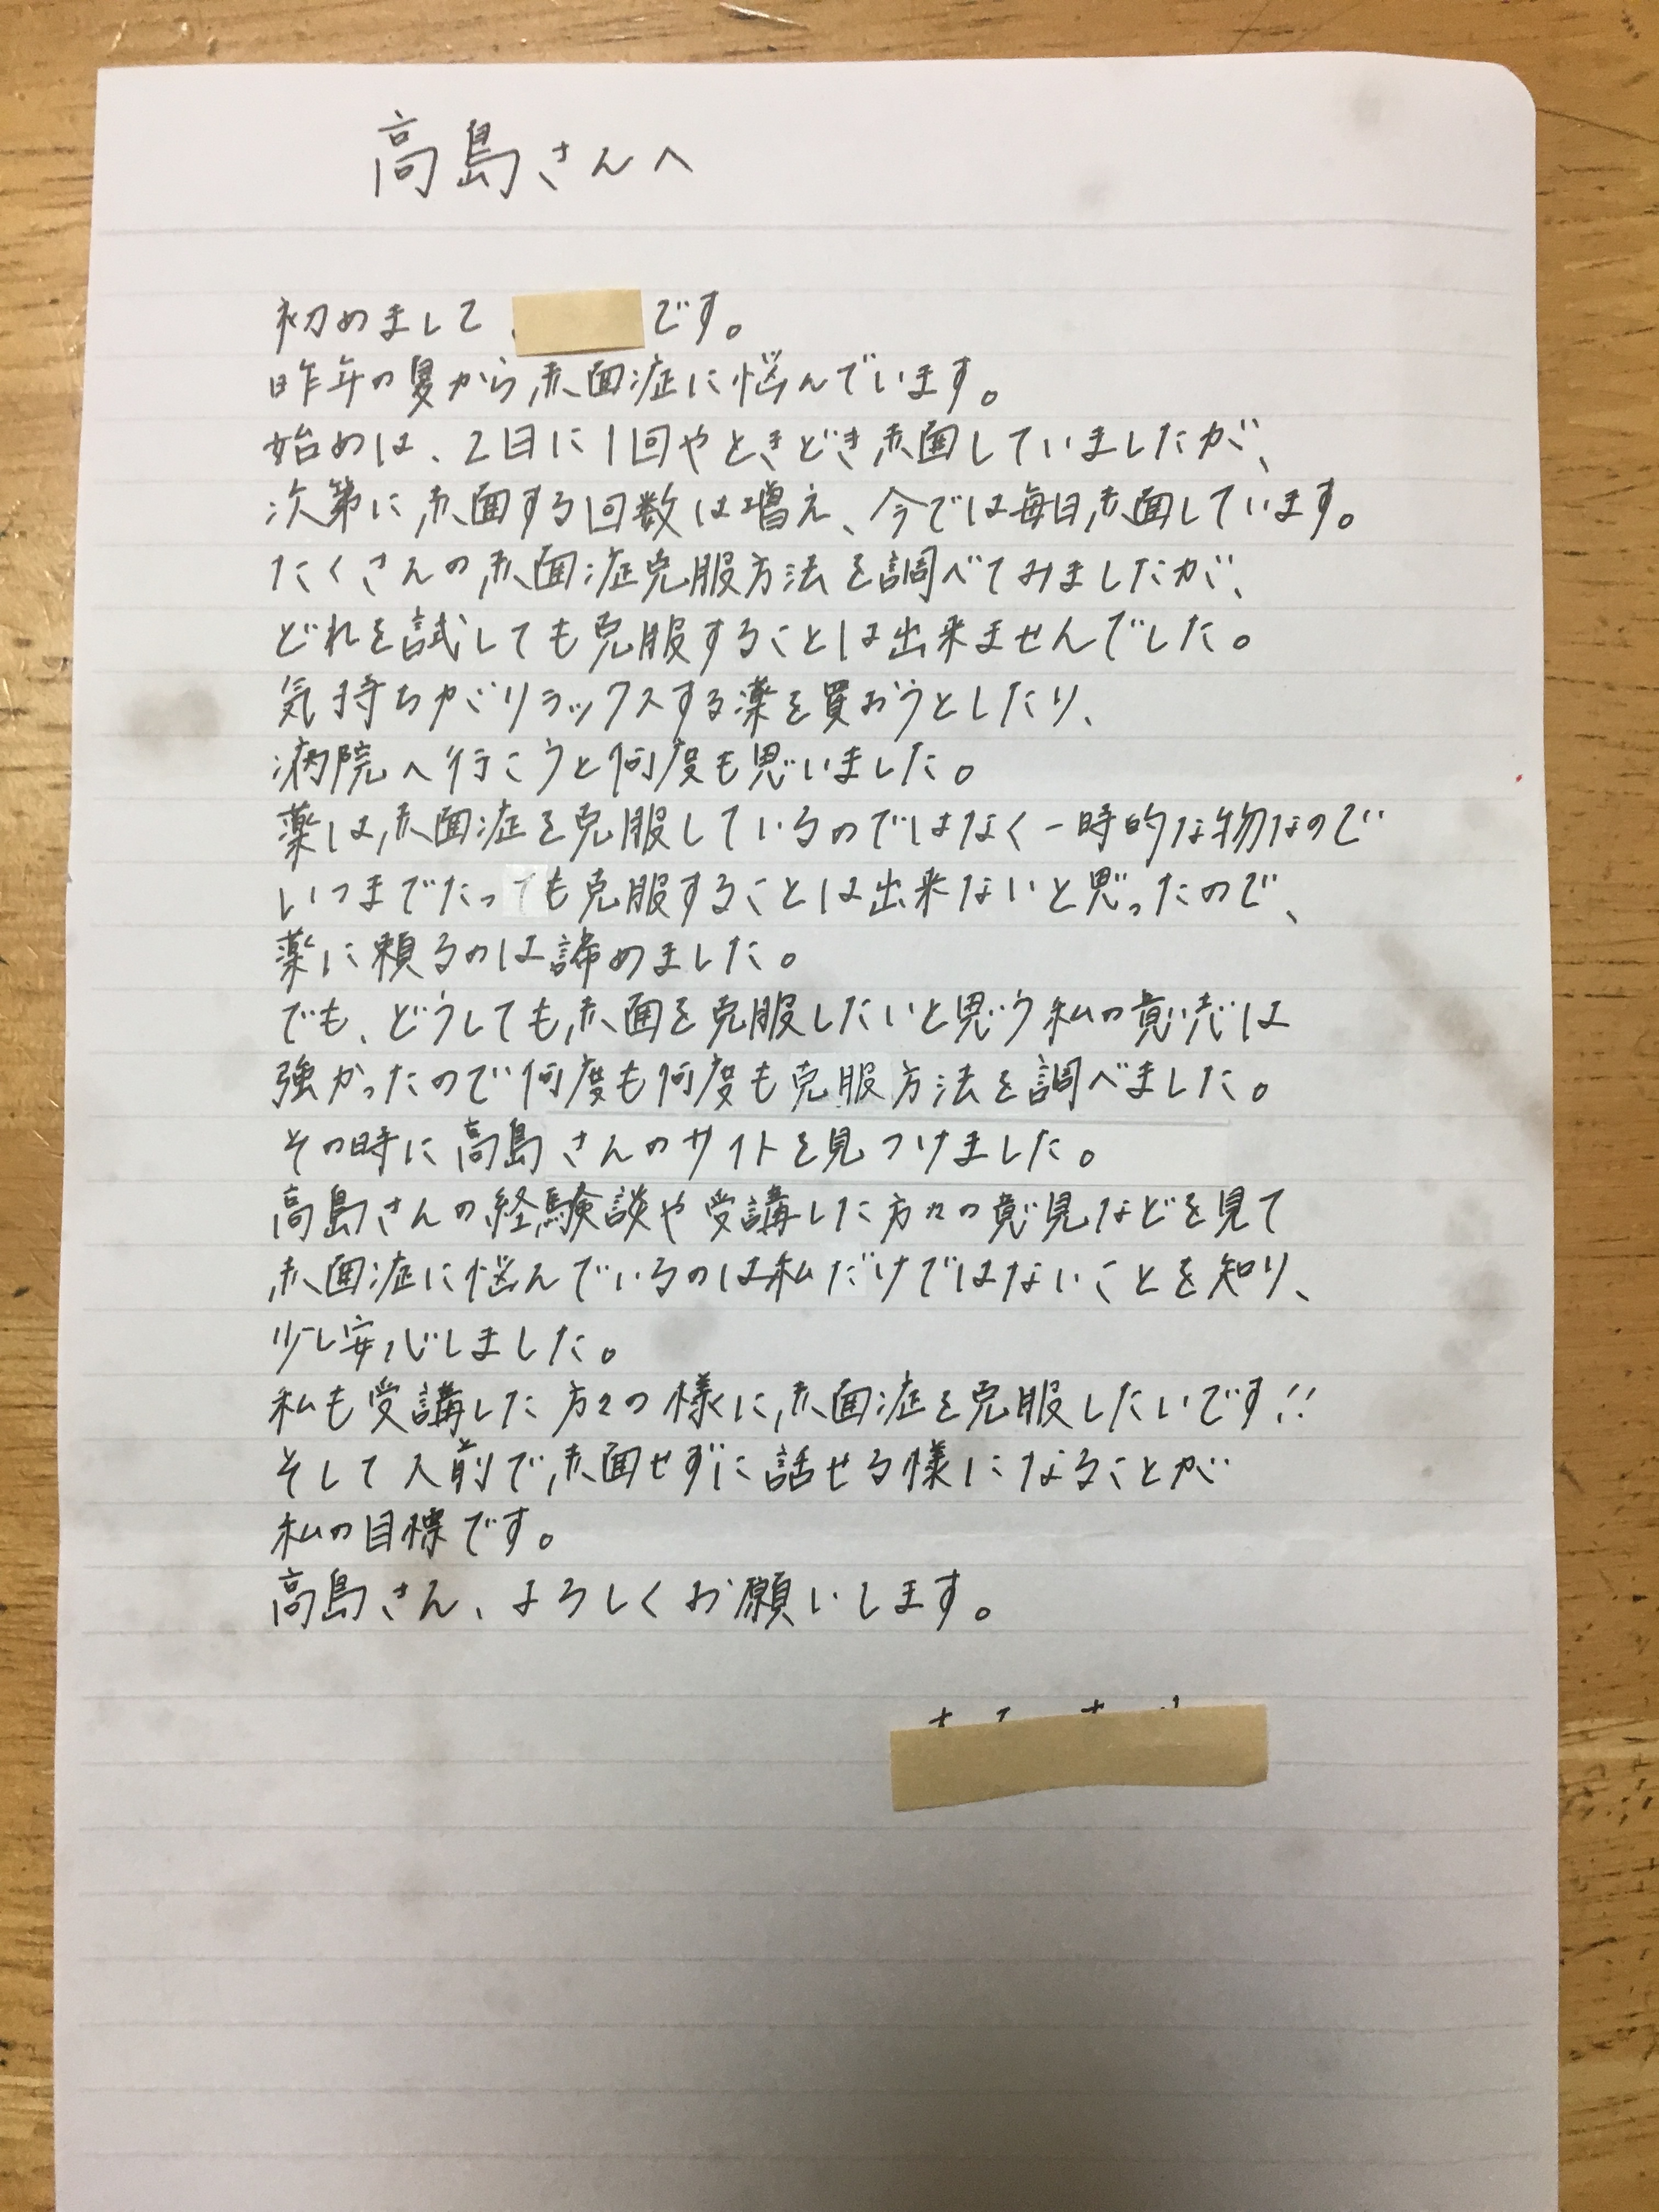 高島さんへ
初めまして、　　　です。
昨年の夏から赤面症に悩んでいます。
始めは、2日に1回やときどき赤面していましたが、
次第に赤面する回数は増え、今では毎日赤面しています。
たくさんの赤面症克服方法を調べてみましたが、
どれを試しても克服することは出来ませんでした。
気持ちがリラックスする薬を買おうとしたり、
病院へ行こうと何度も思いました。
薬は赤面症を克服しているのではなく一時的な物なので
いつまでたっても克服することは出来ないと思ったので、
薬に頼るのは諦めました。
でも、どうしても赤面を克服したいと思う私の意志は
強かったので何度も何度も克服方法を調べました。
その時に高島さんのサイトを見つけました。
高島さんの経験談や受講した方々の意見などを見て
赤面症に悩んでいるのは私だけではないことを知り、
少し安心しました。
私も受講した方々の様に赤面症を克服したいです!!
そして人前で赤面せずに話せる様になることが
私の目標です。
高島さん、よろしくお願いします。